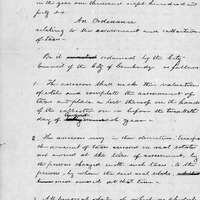 in the year one thousand eight hundred and
forty six
An Ordinance
relating to the assessment and collection
of taxes.
Be it ordained by the City
Council of the City of Cambridge as follows
1. The assessors shall make the valuation
of estate and complete the assessment of
taxes place a list thereof in the hands
of the collector on or before the twentieth
day of August each year.
2. The assessors may in their discretion
the amount of taxes assessed on real estate
owned at the time of assessment, by
the persons charged with such taxes to the
persons, by whom the real estate
was owned at that time.
3. All personal estate of which